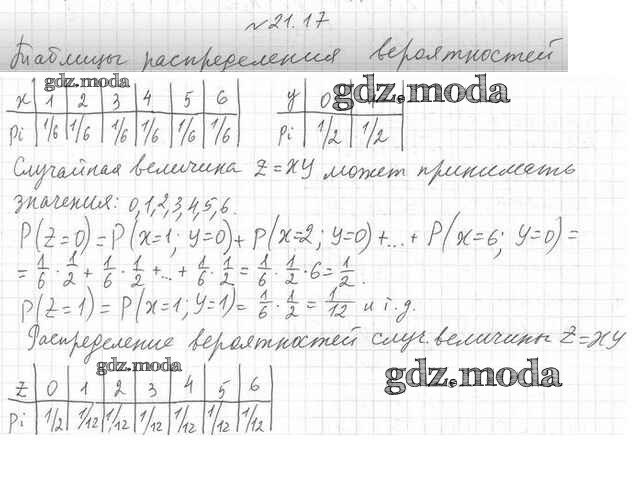 №21.17
Таблицы распределения вероятностей
gdz.moda
gdz.moda
x 1 2 3 4 5 6
y 0
Pi 1/6 1/6 1/6 1/6 1/6 1/6
Pi 1/2 1/2
Случайная величина Z=XY может принимать
значения: 0,1,2,3,4,5,6.
P(Z=0)=P(X=1; Y=0)+P(X=2; Y=0)+...+P(X=6; Y=0)=
=1/6·1/2+1/6·1/2+...+1/6·1/2=1/6·1/2·6=1/2.
P(Z=1)=P(X=1; Y=1)=1/6·1/2=1/12 и т.д.
Распределение вероятностей случ. величины Z=XY
gdz.moda
gdz.moda
Z 0 1 2 3 4 5 6
Pi 1/2 1/12 1/12 1/12 1/12 1/12 1/12